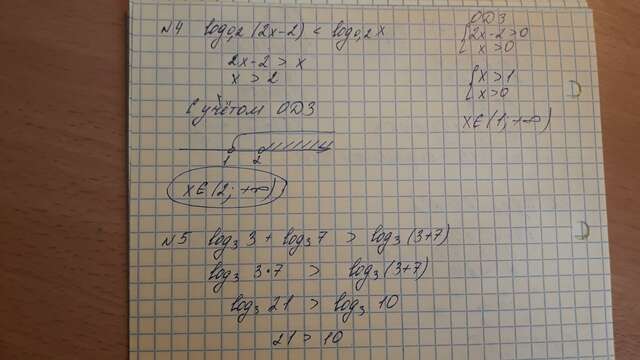 №4 log₀,₂ (2x-2) < log₀,₂ x
2x-2 > x
x > 2
С учётом ОДЗ
1 2
x∈(2; +∞)
ОДЗ
{2x-2>0
{x>0
{x>1
{x>0
x∈(1; +∞)
№5 log₃ 3 + log₃ 7 > log₃ (3+7)
log₃ 3·7 > log₃ (3+7)
log₃ 21 > log₃ 10
21 > 10